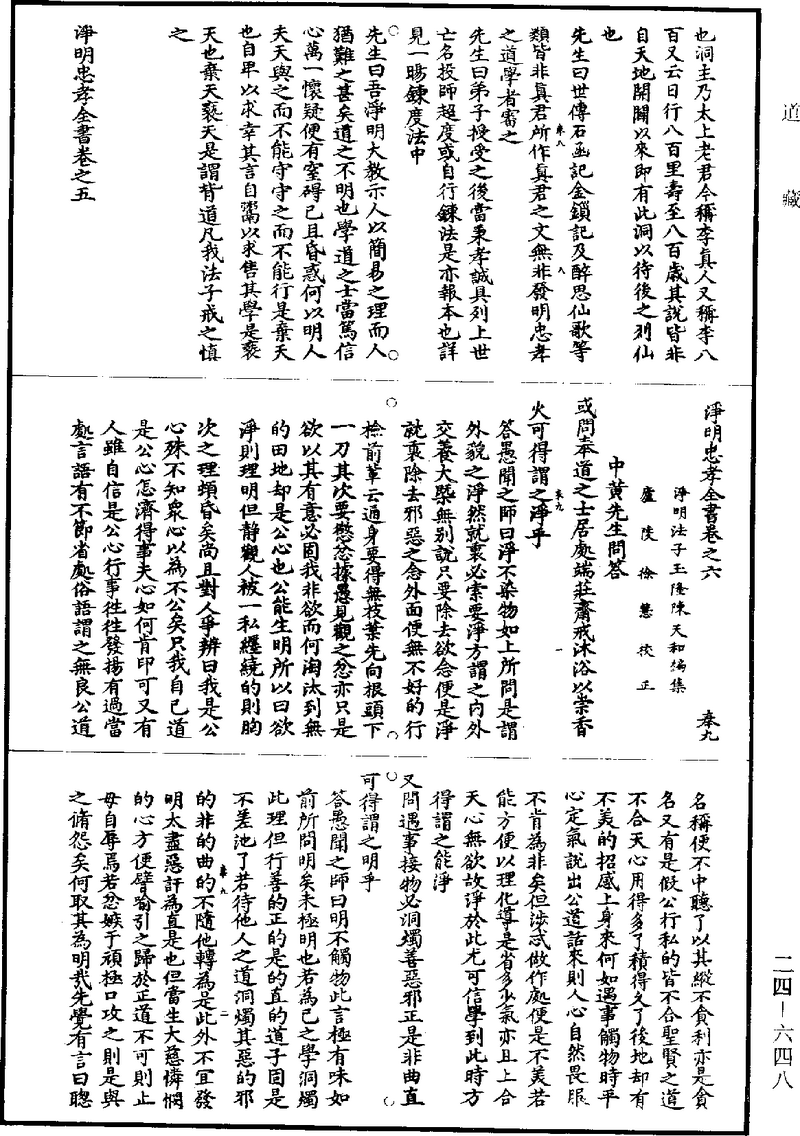 道藏
也洞主乃太上老君今稱李真人又稱李八
百又云日行八百里壽至八百歲其說皆非
自天地開闢以來即有此洞以待後之列仙
也
先生曰世傳石函記金鎖記及醉思仙歌等
類皆非真君所作真君之文無非發明忠孝
之道學者審之
先生曰弟子授受之後當秉孝誠具列上世
亡名投師超度或自行鍊法是亦報本也詳
見一暘鍊度法中
先生曰吾淨明大教示人以簡易之理而人
猶難之甚矣道之不明也學道之士當篤信
心萬一懷疑便有窒碍己且昏惑何以明人
夫天與之而不能守守之而不能行是棄天
也自卑以求幸其言自鬻以求售其學是褻
天也棄天褻天是謂背道凡我法子戒之慎
之
淨明忠孝全書卷之五
淨明忠孝全書卷之六 奉九
淨明法子玉隆陳天和編集
廬陵徐慧校正
中黃先生問答
或問奉道之士居處端莊齋戒沐浴以崇香
火可得謂之淨乎
答愚聞之師曰淨不染物如上所問是謂
外貌之淨然就裏必索要淨方謂之內外
交養大槩無別說只要除去欲念便是淨
就裏除去邪惡之念外面便無不好的行
檢前輩云通身要得無枝葉先向根頭下
一刀其次要懲忿據愚見觀之忿亦只是
欲以其有意必固我非欲而何淘汰到無
的田地却是公心也公能生明所以曰欲
淨則理明但靜觀人被一私纏繞的則胸
次之理頓昏矣尚且對人爭辨曰我是公
心殊不知眾心以為不公矣只我自己道
是公心怎濟得事夫心如何肯印可又有
人雖自信是公心行事往往發揚有過當
處言語有不節省處俗語謂之無良公道
名稱便不中聽了以其縱不貪利亦是貪
名又有是假公行私的皆不合聖賢之道
不合天心用得多了積得久了後地却有
不美的招感上身來何如遇事觸物時平
心定氣說出公道話來則人心自然畏服
不肯為非矣但涉忒做作處便是不美若
能方便以理化導是省多少氣亦且上合
天心無欲故淨於此尤可信學到此時方
得謂之能淨
又問遇事接物必洞燭善惡邪正是非曲直
可得謂之明乎
答愚聞之師曰明不觸物此言極有味如
前所問明矣未極明也若為己之學洞燭
此理但行善的正的是的直的道子固是
不差池了若待他人之道洞燭其惡的邪
的非的曲的不隨他轉為是此外不宜發
明太盡惡訐為直是也但當生大慈憐憫
的心方便譬喻引之歸於正道不可則止
毋自辱焉若忿嫉于頑極口攻之則是與
之脩怨矣何取其為明哉先覺有言曰聰
二四—六四八